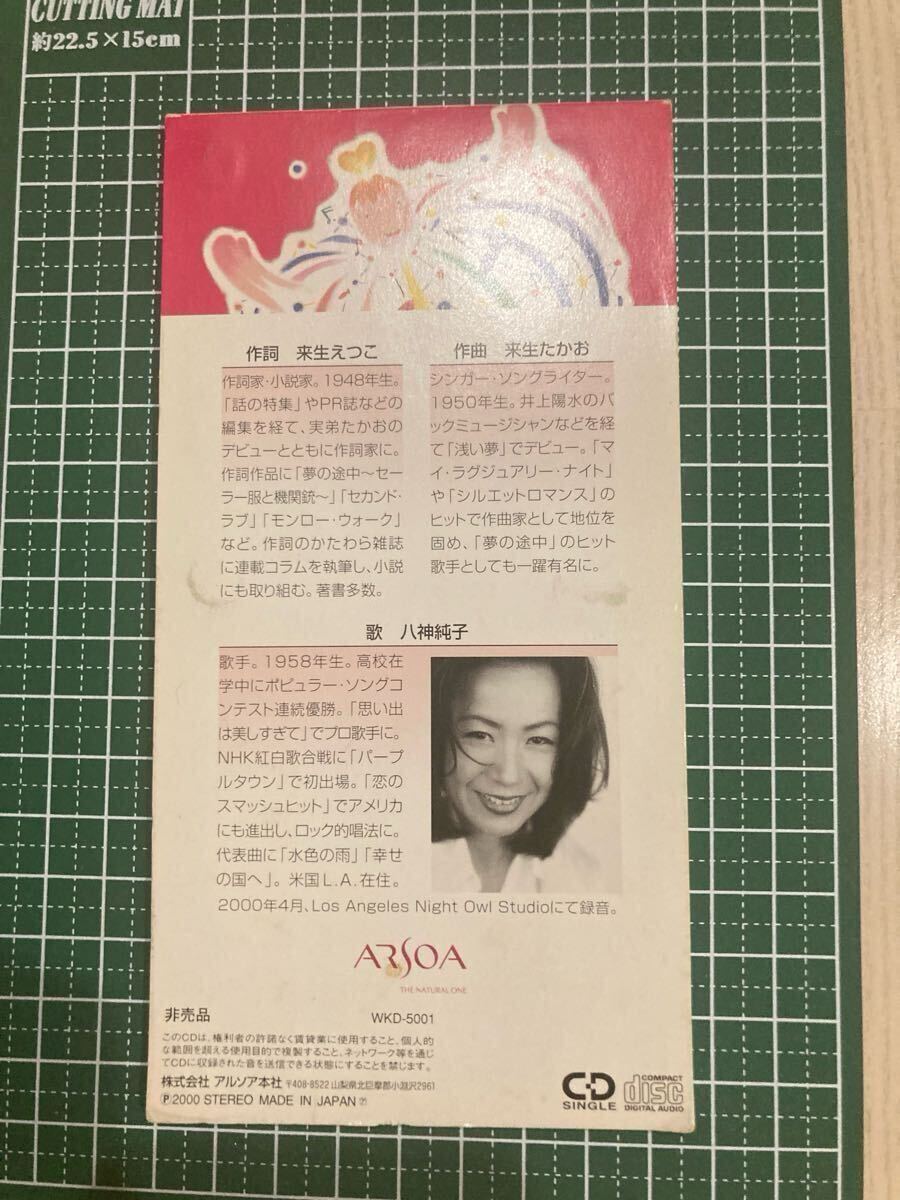 CUTTING MAT
約22.5×15cm
作詞 来生えつこ
作詞家・小説家。1948年生。
「話の特集」やPR誌などの
編集を経て、実弟たかおの
デビューとともに作詞家に。
作詞作品に「夢の途中〜セー
ラー服と機関銃〜」「セカンド・
ラブ」「モンロー・ウォーク」
など。作詞のかたわら雑誌
に連載コラムを執筆し、小説
にも取り組む。著書多数。
作曲 来生たかお
シンガー・ソングライター。
1950年生。井上陽水のバ
ックミュージシャンなどを経
て「浅い夢」でデビュー。「マ
イ・ラグジュアリー・ナイト」
や「シルエットロマンス」の
ヒットで作曲家として地位を
固め、「夢の途中」のヒット
歌手としても一躍有名に。
歌 八神純子
歌手。1958年生。高校在
学中にポピュラー・ソングコ
ンテスト連続優勝。「思い出
は美しすぎて」でプロ歌手に。
NHK紅白歌合戦に「パープ
ルタウン」で初出場。「恋の
スマッシュヒット」でアメリカ
にも進出し、ロック的唱法に。
代表曲に「水色の雨」「幸せ
の国へ」。米国L.A.在住。
2000年4月、Los Angeles Night Owl Studioにて録音。
ARSOA
THE NATURAL ONE
非売品
WKD-5001
このCDは、権利者の許諾なく賃貸業に使用すること、個人的
な範囲を超える使用目的で複製すること、ネットワーク等を通じ
てCDに収録された音を送信できる状態にすることを禁じます。
株式会社 アルソア本社 〒408-8522 山梨県北巨摩郡小淵沢2961
Ⓟ2000 STEREO MADE IN JAPAN
CD
SINGLE
COMPACT
disc
DIGITAL AUDIO